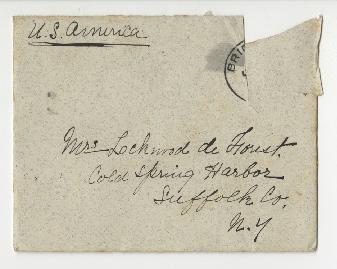 U.S. America
BRI
Mrs Lockwood de Forest.
Cold Spring Harbor
Suffolk Co.
N.Y